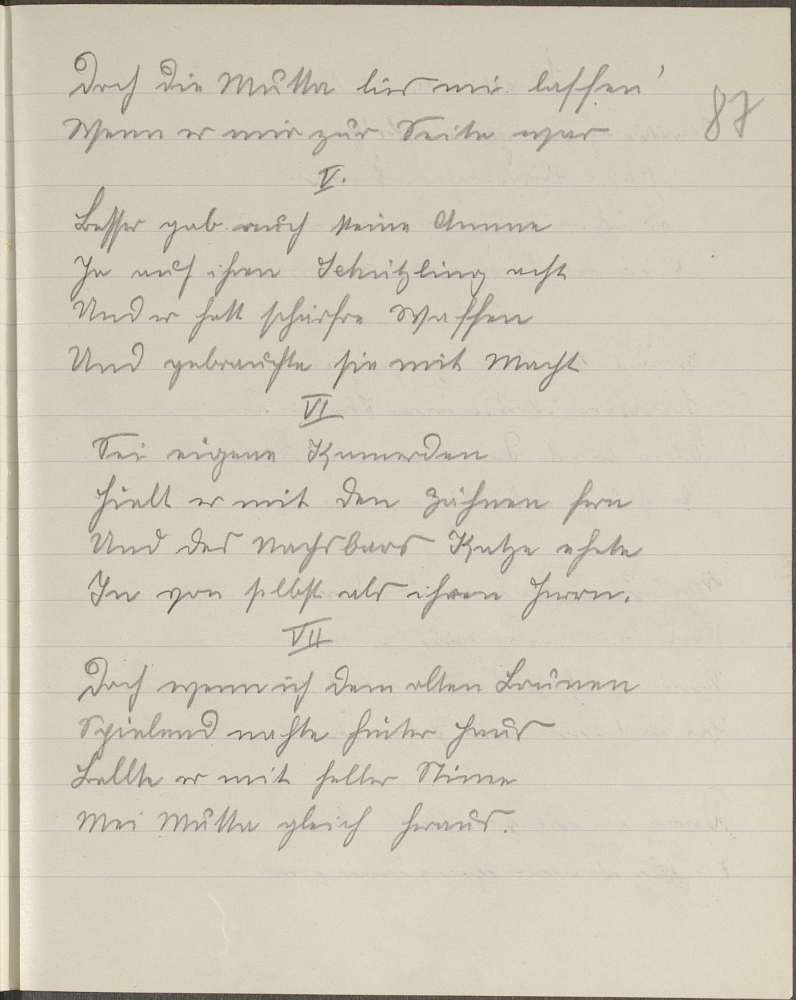 Doch die Mutta lies mir lassen'
Wenn er mir zur Seite war
87
V.
Besser gab auch keine Amme
Je auf ihren Schützling acht
Und er hatt schärfre Waffen
Und gebrauchte sie mit Macht
VI
Sei eigene Kameraden
Hielt er mit den Zähnen fern
Und des Nachbars Katze ehrte
In von selbst als ihren Herrn.
VII
Doch wenn ich dem alten Brunnen
Spielend nahte hinter Haus
Bellte er mit heller Stimme
Mei Mutta gleich heraus.